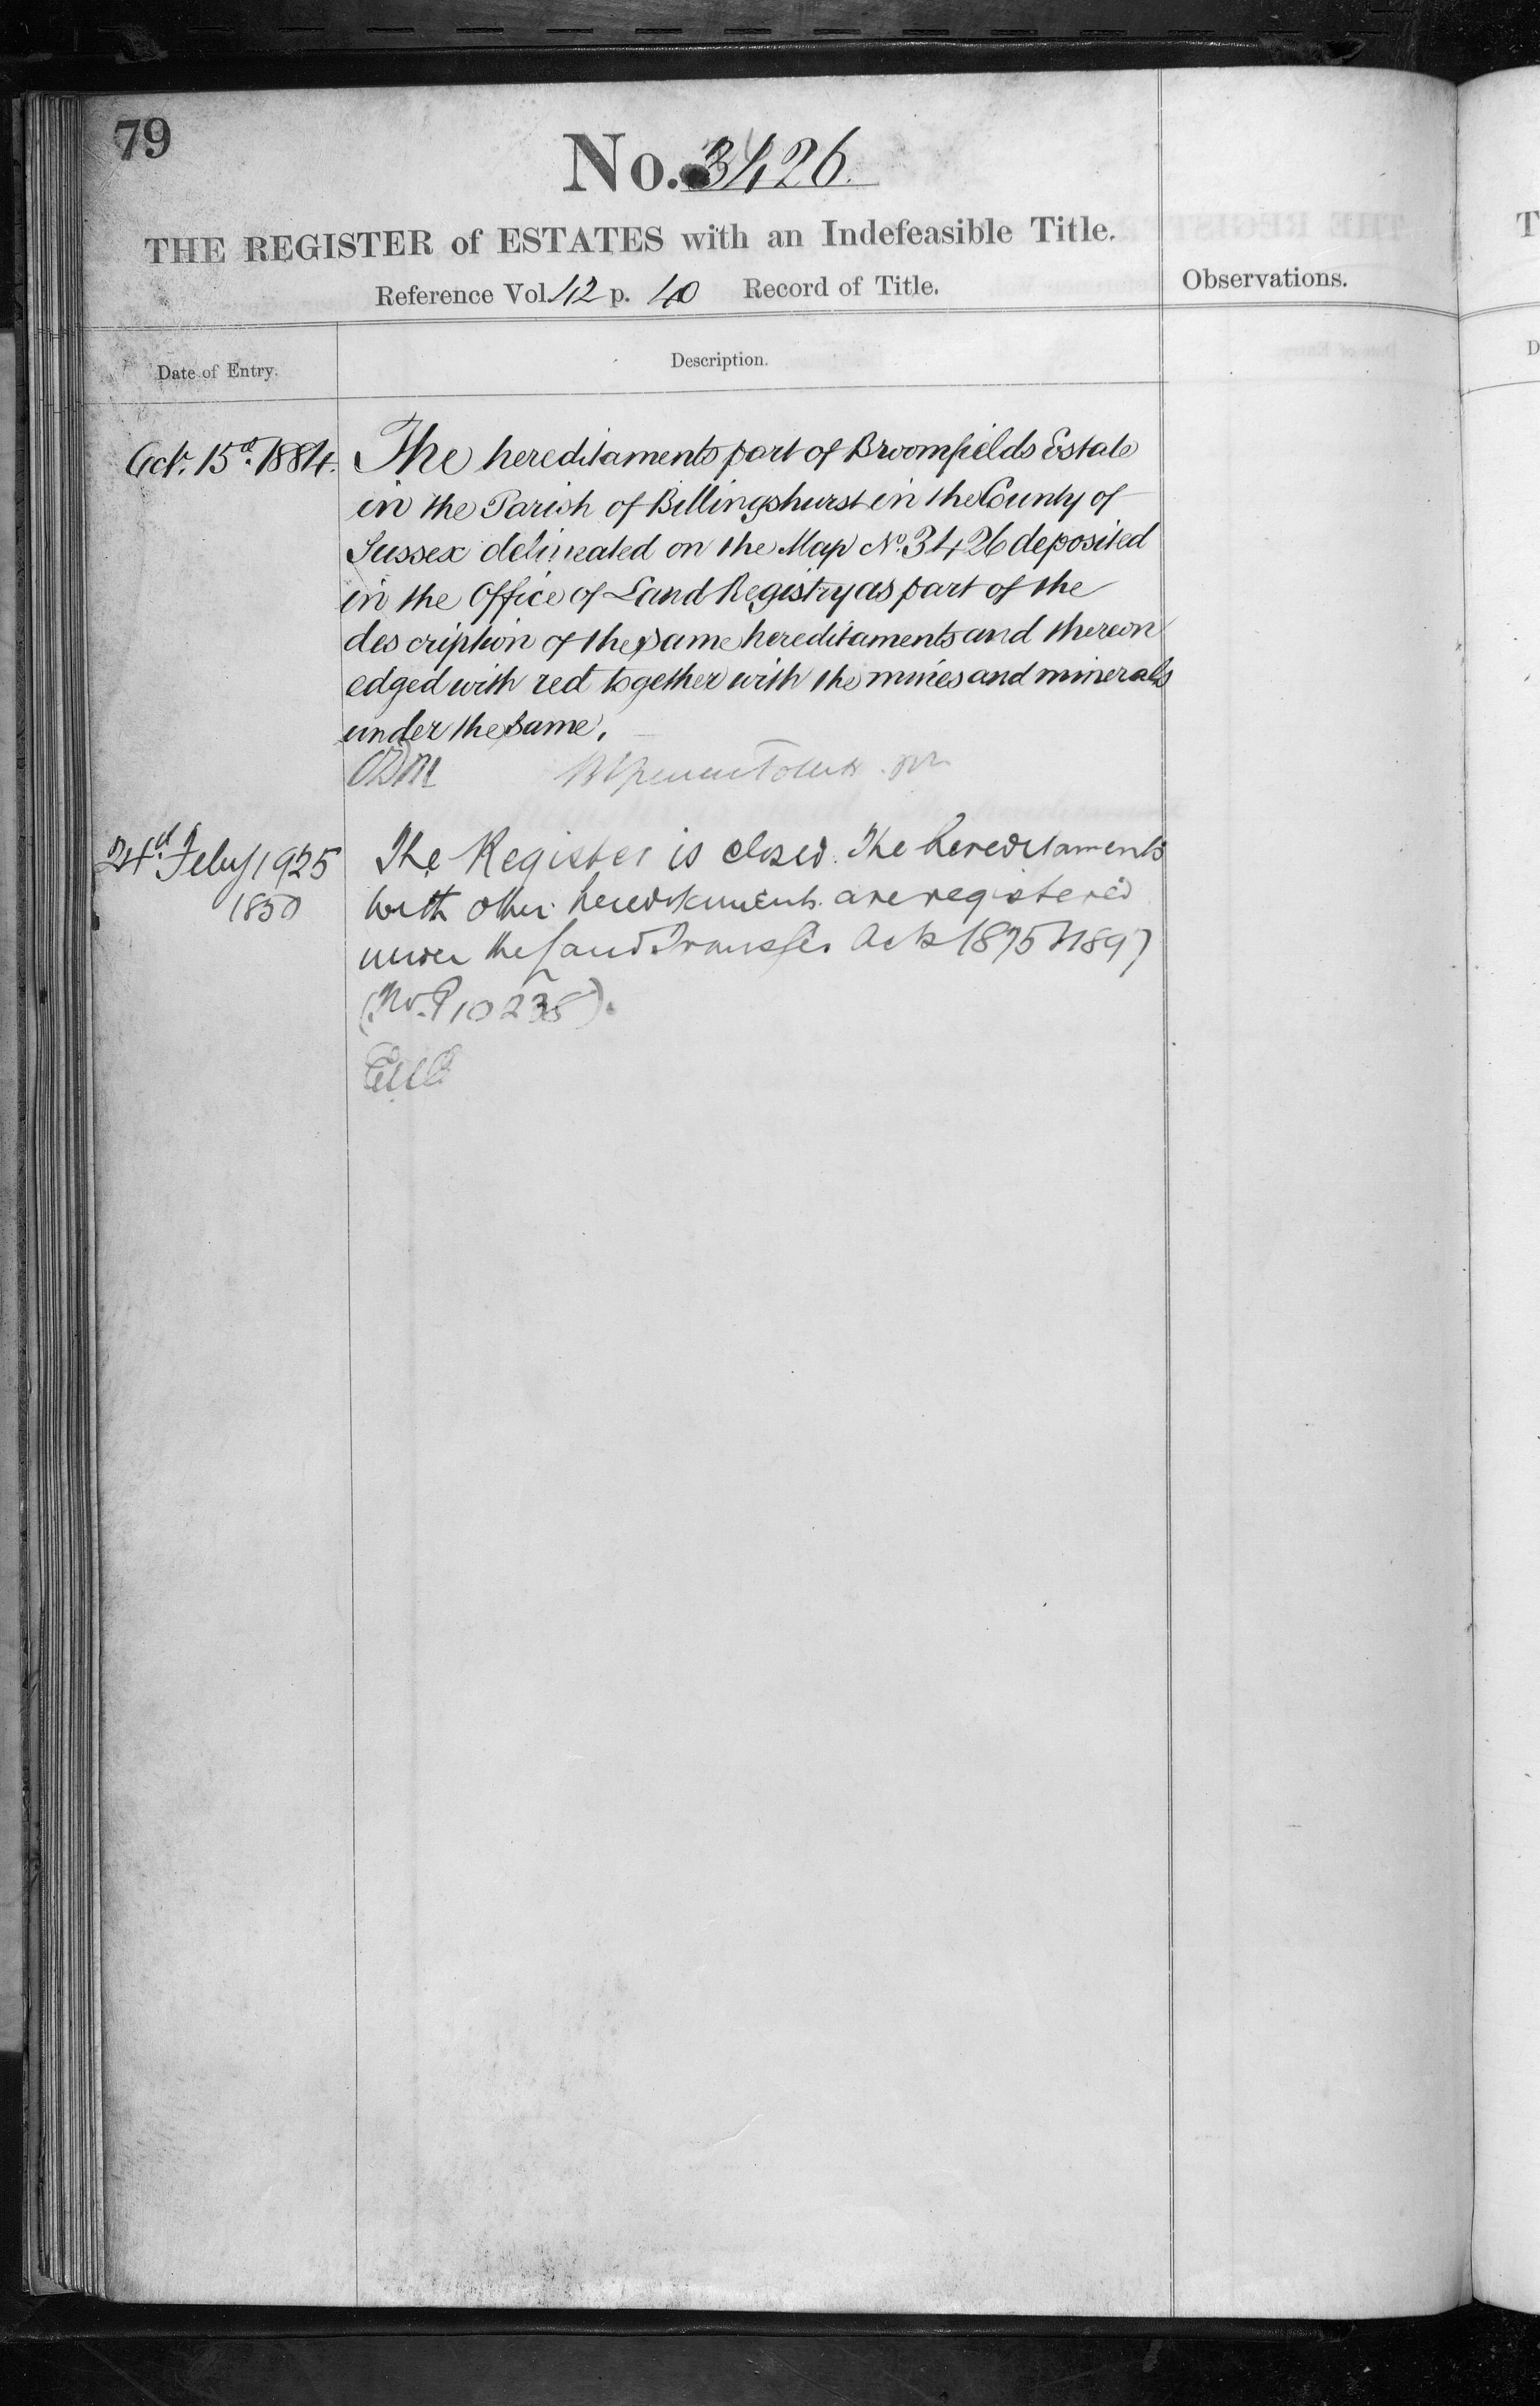 79
No. 3426.
THE REGISTER of ESTATES with an Indefeasible Title.
Reference Vol. 42 p. 40 Record of Title.
Observations.
Date of Entry.
Description.
Oct. 15th. 1884.
The hereditaments part of Broomfields Estate
in the Parish of Billingshurst in the County of
Sussex delineated on the Map No. 3426 deposited
in the Office of Land Registry as part of the
description of the same hereditaments and thereon
edged with red together with the mines and minerals
under the same.
24th. Feby 1925
1850
The Register is closed. The hereditaments
with other hereditaments are registered
under the Land Transfer Acts 1875 & 1897
(No. P 10238).